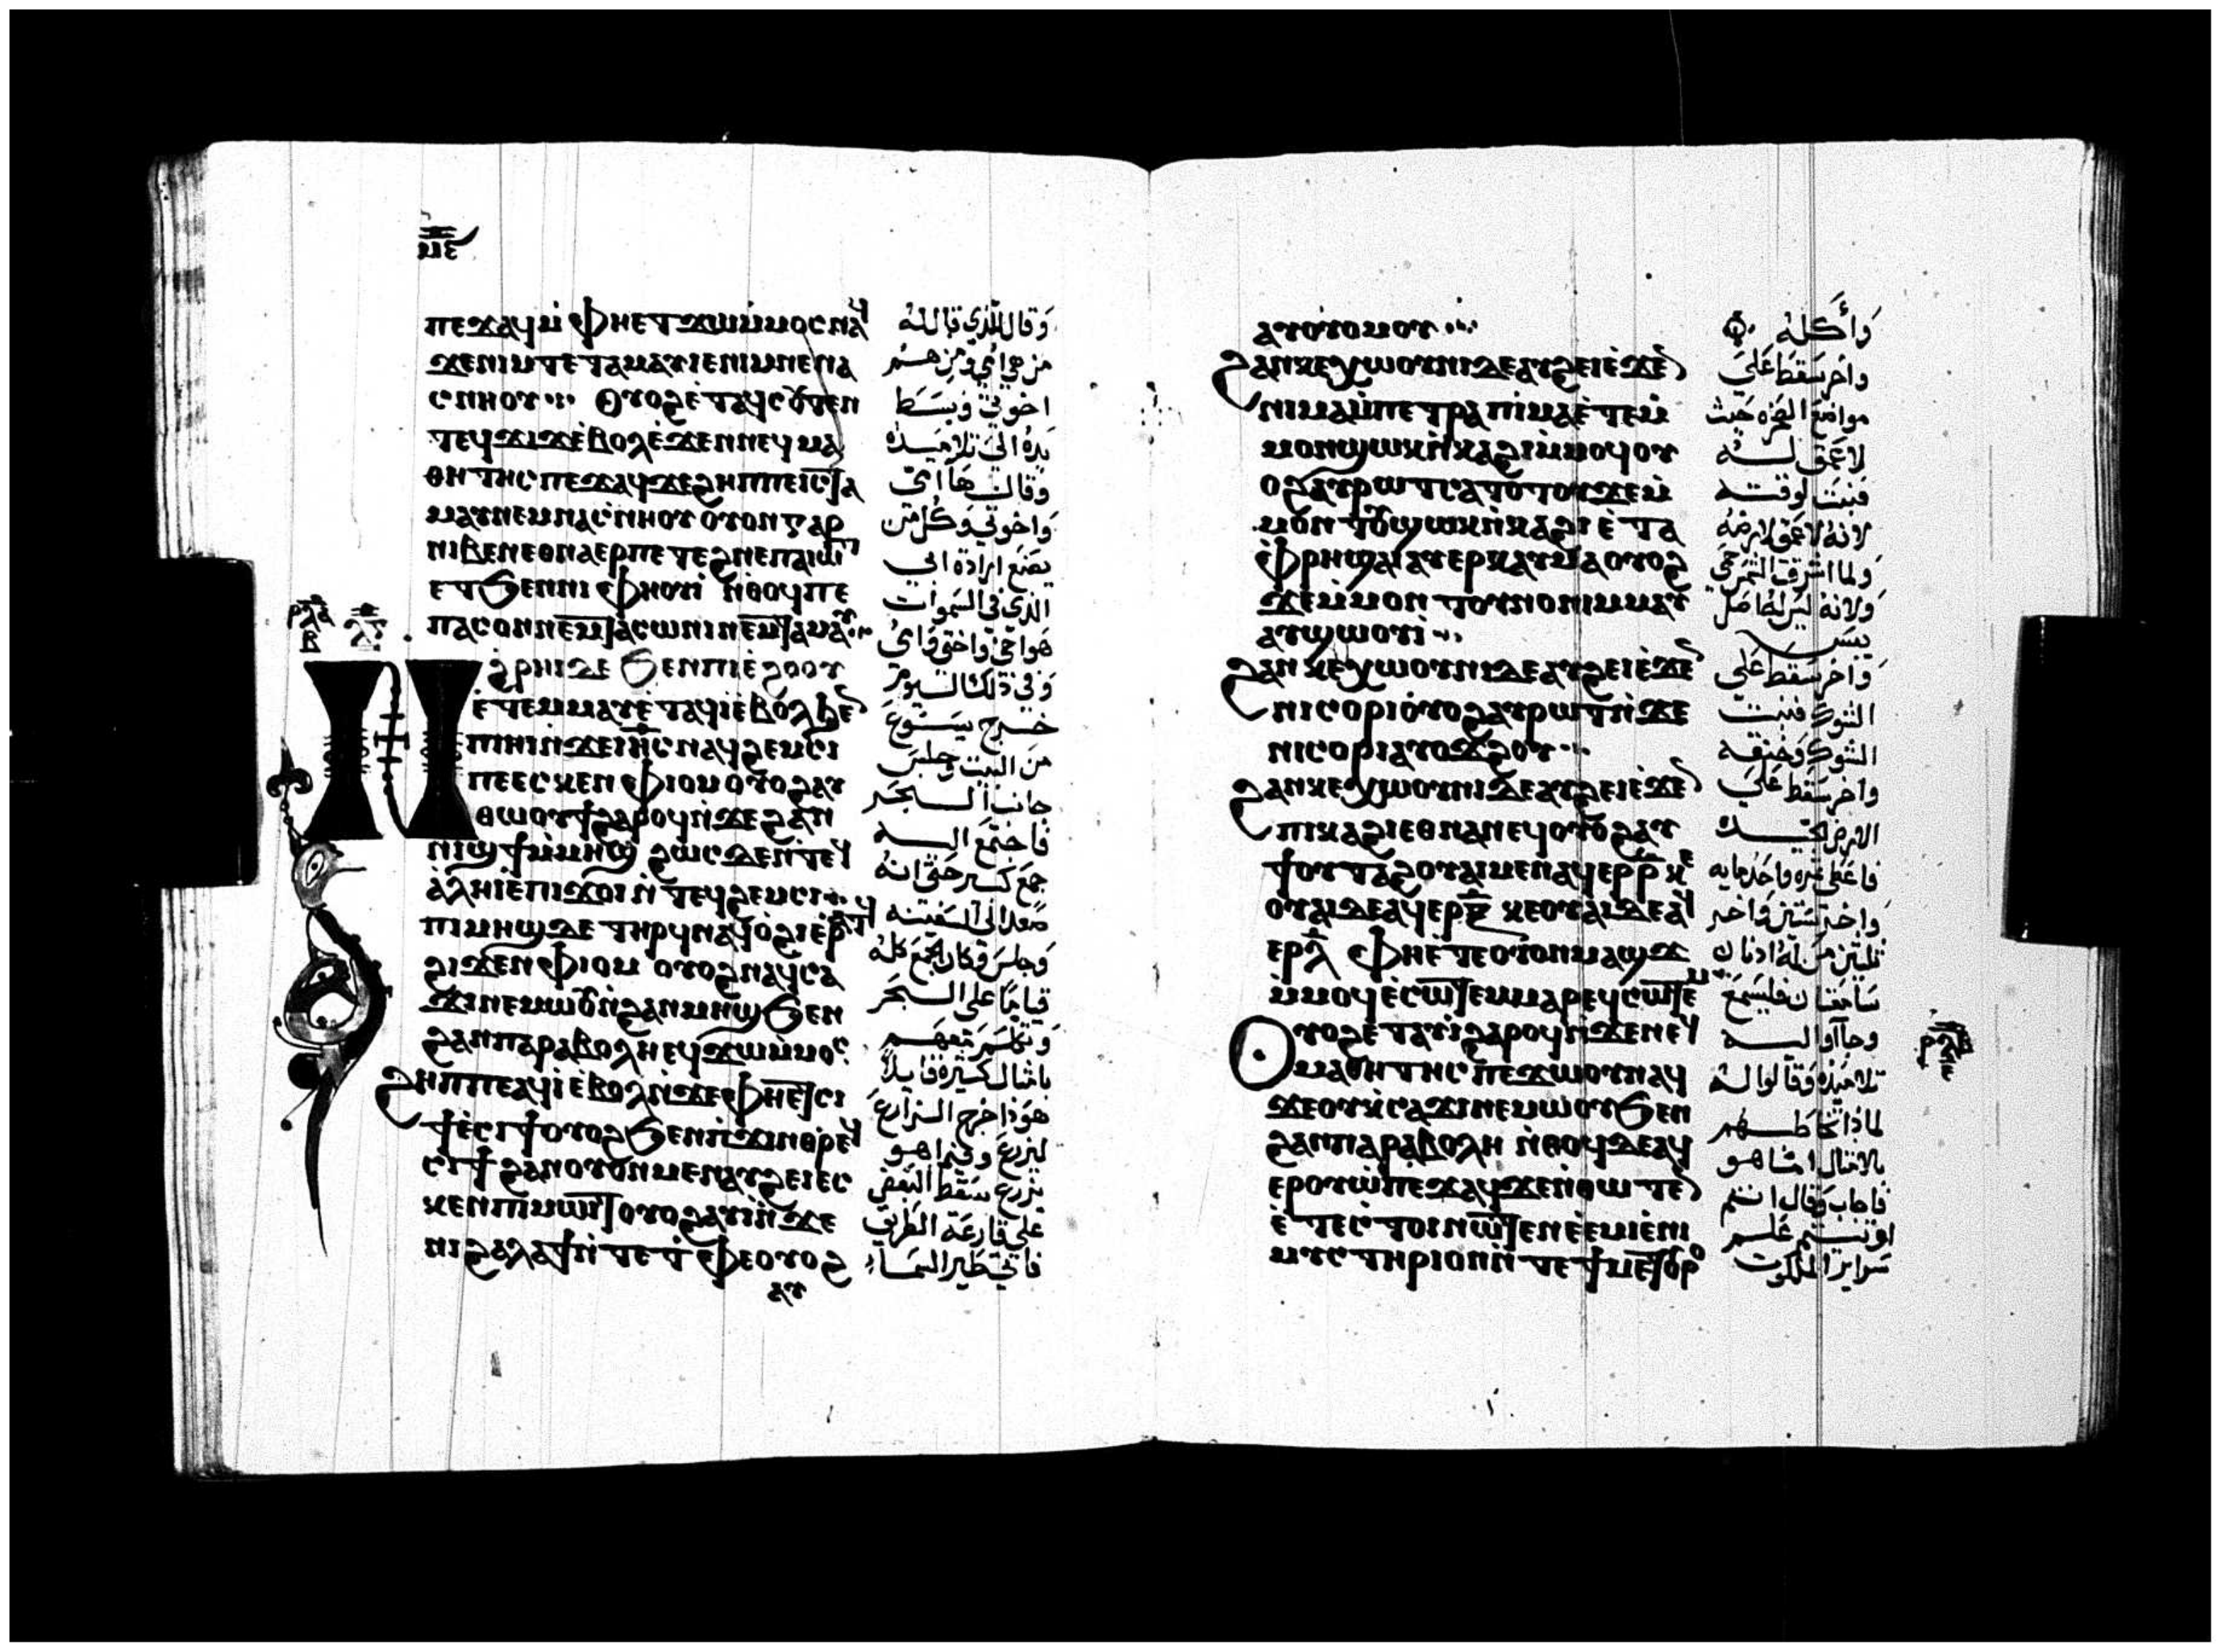 ⲙⲉ
ⲡⲉϫⲁϥⲙ̇ⲫⲏⲉⲧϫⲱⲙ̇ⲙⲟⲥⲛⲁϥ
ϫⲉⲛⲓⲙⲧⲉⲧⲁⲙⲁⲩⲓⲉⲛⲓⲙⲛⲉⲛⲁ
ⲥⲛⲏⲟⲩ ⲟⲩⲟϩⲉ̇ⲧⲁϥⲥⲟⲩⲧⲉⲛ
ⲧⲉϥϫⲓϫⲉ̇ⲃⲟⲗⲉ̇ϫⲉⲛⲛⲉϥⲙⲁ
ⲑⲏⲧⲏⲥⲡⲉϫⲁϥϫⲉϩⲏⲡⲡⲉⲓⲥⲧⲁ
ⲙⲁⲩⲛⲉⲙⲛⲁⲥ̇ⲛⲏⲟⲩ ⲟⲩⲟⲛⲅⲁⲣ
ⲛⲓⲃⲉⲛⲉⲑⲛⲁⲉⲣⲡⲉⲧⲉϩⲛⲉⲡⲁⲓⲱⲧ
ⲉⲧϧⲉⲛⲛⲓⲫⲏⲟⲩⲓ̇ ⲛ̇ⲑⲟϥⲡⲉ
ⲡⲁⲥⲟⲛⲛⲉⲙⲧⲁⲥⲱⲛⲓⲛⲉⲙⲧⲁⲙⲁⲩ
ⲣⲗⲁ ⲗⲅ
ⲃ
ⲛ̇ϩⲣⲏⲓⲇⲉ ϧⲉⲛⲡⲓⲉ̇ϩⲟⲟⲩ
ⲉ̇ⲧⲉⲙⲙⲁⲩⲉ̇ⲧⲁϥⲓ̇ⲉ̇ⲃⲟⲗϧⲉⲛ
ⲡⲓⲏⲓⲛ̇ϫⲉⲓⲏⲥⲛⲁϥϩⲉⲙⲥⲓ
ⲡⲉⲉⲥⲕⲉⲛⲫⲓⲟⲙⲟⲩⲟϩⲁⲩ
ⲑⲱⲟⲩϯϩⲁⲣⲟϥⲛ̇ϫⲉϩⲁⲛ
ⲛⲓϣϯⲙ̇ⲙⲏϣ ϩⲱⲥⲇⲉⲛ̇ⲧⲉϥ
ⲁ̇ⲗⲏⲓⲉ̇ⲡⲓϫⲟⲓⲛ̇ⲧⲉϥϩⲉⲙⲥⲓ
ⲡⲓⲙⲏϣⲇⲉⲧⲏⲣϥⲛⲁϥⲟ̇ϩⲓⲉ̇ⲣⲁⲧϥ
ϩⲓϫⲉⲛⲫⲓⲟⲙ ⲟⲩⲟϩⲛⲁϥⲥⲁ
ϫⲓⲛⲉⲙⲱⲟⲩⲛ̇ϩⲁⲛⲙⲏϣϧⲉⲛ
ϩⲁⲛⲡⲁⲣⲁⲃⲟⲗⲏⲉϥϫⲱⲙ̇ⲙⲟⲥ
ϩⲏⲡⲡⲉⲁϥⲓ̇ⲉ̇ⲃⲟⲗⲛ̇ϫⲉⲫⲏⲉⲧⲥⲓ
ϯⲉ̇ⲥⲓϯⲟⲩⲟϩϧⲉⲛⲡ̇ϫⲓⲛⲑⲣⲉϥ
ⲥⲓϯϩⲁⲛⲟⲩⲟⲛⲙⲉⲛⲁⲩϩⲉⲓⲉⲥ
ⲕⲉⲛⲡⲓⲙⲱⲓⲧⲟⲩⲟϩⲁⲩⲓ̇ⲛ̇ϫⲉ
ⲛⲓϩⲁⲗⲁϯⲛ̇ⲧⲉⲧ̇ⲫⲉⲟⲩⲟϩ
ⲁⲩ
وقال للذي قال له
من هي امي ومن هم
اخوتي وبسط
يده الى تلاميذه
وقال ها امي
واخوتي وكل من
يصنع ارادة ابي
الذي في السموات
هو اخي واختي وامي
وفي ذلك اليوم
خرج يسوع
من البيت وجلس
جانب البحر
فاجتمع اليه
جمع كبير حتى انه
صعد الى السفينه
وجلس وكان الجمع كله
قياما على البحر
وكلمهم
بامثال كثيره قايلا
هوذا خرج الزارع
ليزرع وفيما هو
يزرع سقط البعض
على قارعة الطريق
فاتي طير السماء
ⲁⲩⲟⲩⲟⲙⲟⲩ
ϩⲁⲛⲕⲉⲭⲱⲟⲩⲛⲓⲇⲉⲁⲩϩⲉⲓⲉ̇ϫⲉⲛ
ⲛⲓⲙⲁⲙ̇ⲡⲉⲧⲣⲁⲡⲓⲙⲁⲉ̇ⲧⲉⲙ̇
ⲙⲟⲛϣⲱⲕⲛ̇ⲕⲁϩⲓⲙ̇ⲙⲟϥⲟⲩ
ⲟϩⲁⲩⲣⲱⲧⲥⲁⲧⲟⲧⲟⲩϫⲉⲙ̇
ⲙⲟⲛⲧⲟⲩϣⲱⲕⲛ̇ⲕⲁϩⲓⲉ̇ⲧⲁ
ⲫ̇ⲣⲏϣⲁⲓⲁⲩⲉⲣⲕⲁⲩⲙⲁⲟⲩⲟϩ
ϫⲉⲙ̇ⲙⲟⲛⲧⲟⲩⲛⲟⲛⲓⲙ̇ⲙⲁⲩ
ⲁⲩϣⲱⲟⲩⲓ̇
ϩⲁⲛⲕⲉⲭⲱⲟⲩⲛⲓⲇⲉⲁⲩϩⲉⲓⲉ̇ϫⲉⲛ
ⲛⲓⲥⲟⲩⲣⲓⲟⲩⲟϩⲁⲩⲣⲱⲧⲛ̇ϫⲉ
ⲛⲓⲥⲟⲩⲣⲓⲁⲩⲟϫϩⲟⲩ
ϩⲁⲛⲕⲉⲭⲱⲟⲩⲛⲓⲇⲉⲁⲩϩⲉⲓⲉ̇ϫⲉⲛ
ⲡⲓⲕⲁϩⲓⲉⲑⲛⲁⲛⲉϥⲟⲩⲟϩⲁⲩ
ϯⲟⲩⲧⲁϩⲟⲩⲁⲓⲙⲉⲛⲁϥⲉⲣⲣ ⲕⲉ
ⲟⲩⲁⲓⲇⲉⲁϥⲉⲣⲝ ⲕⲉⲟⲩⲁⲓⲇⲉⲁϥ
ⲉⲣⲗ ⲫⲏⲉ̇ⲧⲉⲟⲩⲟⲛⲙⲁϣϫ
ⲙ̇ⲙⲟϥⲉ̇ⲥⲱⲧⲉⲙⲙⲁⲣⲉϥⲥⲱⲧⲉⲙ
ⲟⲩⲟϩⲉ̇ⲧⲁⲩⲓ̇ϩⲁⲣⲟϥⲛ̇ϫⲉⲛⲉϥ
ⲙⲁⲑⲏⲧⲏⲥⲡⲉϫⲱⲟⲩⲛⲁϥ
ϫⲉⲟⲩⲕ̇ⲥⲁϫⲓⲛⲉⲙⲱⲟⲩϧⲉⲛ
ϩⲁⲛⲡⲁⲣⲁⲃⲟⲗⲏ ⲛ̇ⲑⲟϥⲇⲉⲁϥ
ⲉⲣⲟⲩⲱ̇ⲡⲉϫⲁϥϫⲉⲛ̇ⲑⲱⲧⲉⲛ
ⲉ̇ⲧⲉⲥ̇ⲧⲟⲓⲛⲱⲧⲉⲛⲉ̇ⲉ̇ⲙⲓⲉ̇ⲛⲓ
ⲙⲩⲥⲧⲏⲣⲓⲟⲛⲛ̇ⲧⲉϯⲙⲉⲧⲟⲩⲣⲟ
واكله
واخر سقط على
مواضع الصخره حيث
لا عمق له
فنبت لوقته
لانه لا عمق لارضه
ولما اشرقت الشمس حمي
ولانه ليس له اصل
يبس
واخر سقط على
الشوك فنبت
الشوك وخنقه
واخر سقط على
الارض الجيده
فاعطى ثمره واحد مايه
واخر ستين واخر
ثلثين من له اذنان
سامعتان فليسمع
وجاآوا اليه
تلاميذه وقالوا له
لماذا تخاطبهم
بالامثال اما هو
فاجاب وقال انتم
اوتيتم علم
سراير الملكوت
ⲣⲗⲃ
ⲉ